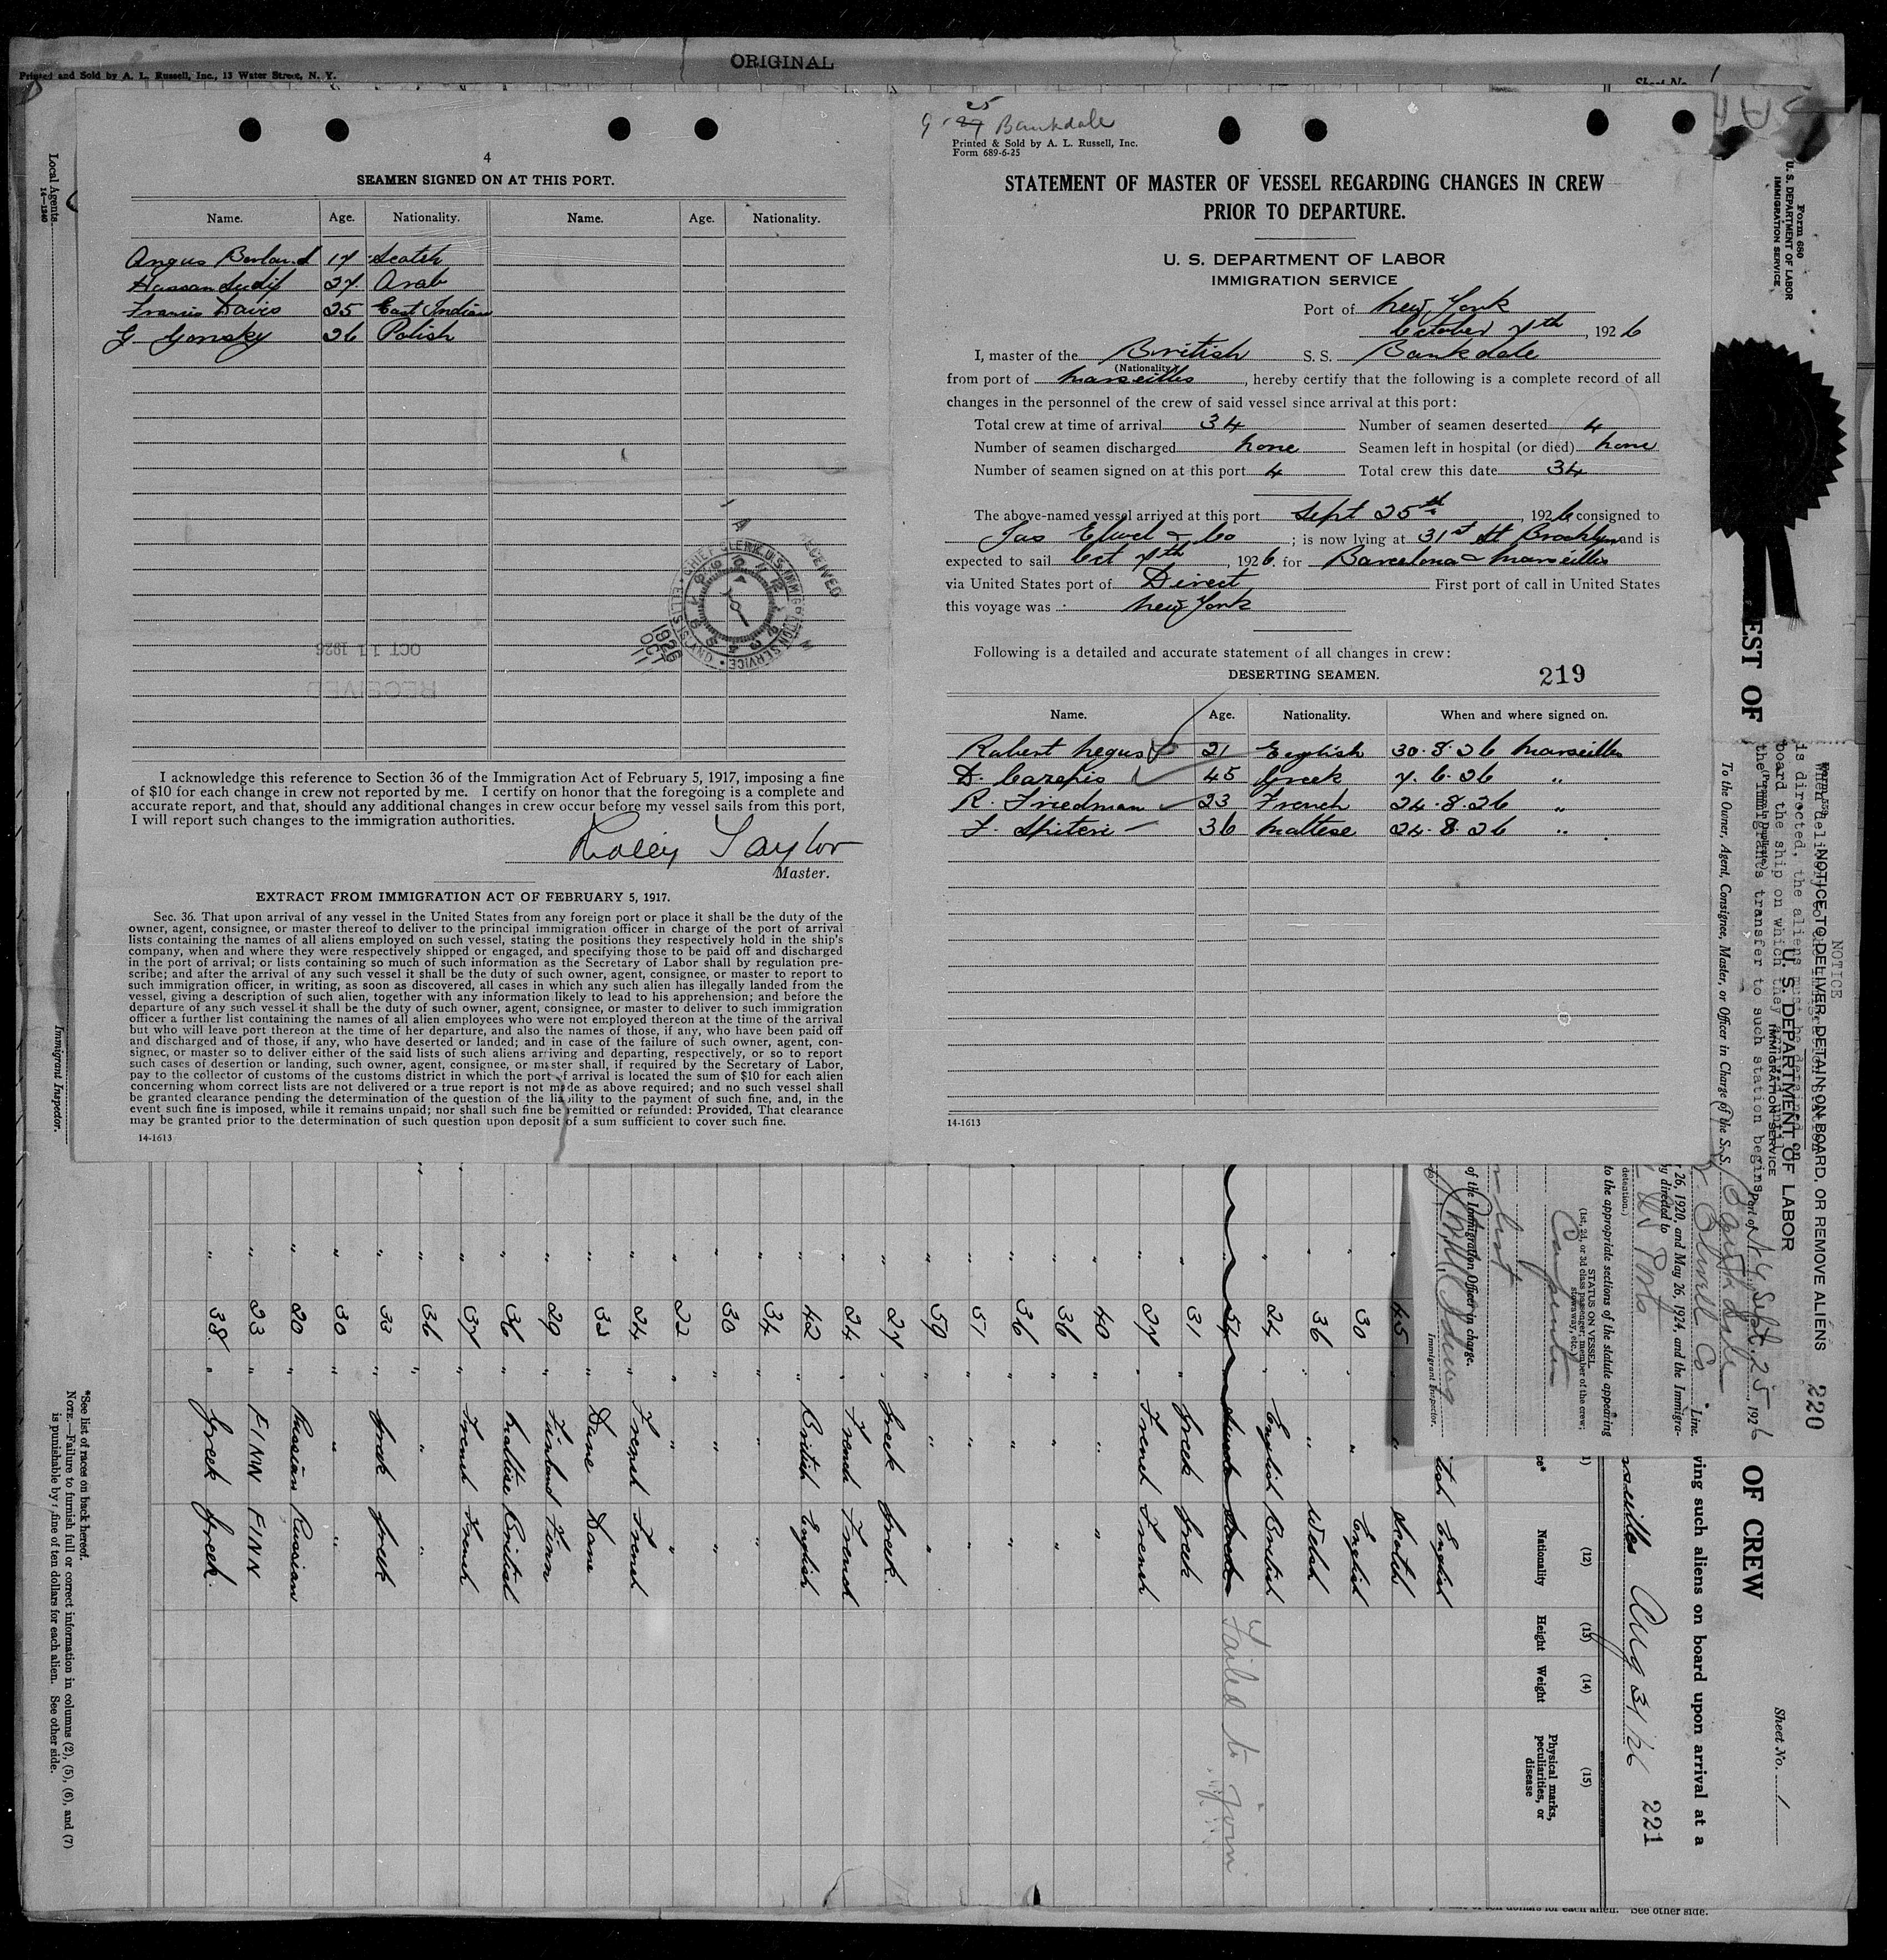 ORIGINAL
Printed and Sold by A. L. Russell, Inc., 13 Water Street, N. Y.
Sheet No. 1
Local Agents
14-1240
Immigrant Inspector.
4
SEAMEN SIGNED ON AT THIS PORT.
Name. Age. Nationality. Name. Age. Nationality.
Angus Borland 17 Scotch
Hassan 27. Arab
Francis Davis 25 East Indian
G Gonsky 26 Polish
RECEIVED
CHIEF CLERK U.S. IMMIGRATION SERVICE
ELLIS ISLAND
1926 OCT 11
OCT 11 1926
RECEIVED
I acknowledge this reference to Section 36 of the Immigration Act of February 5, 1917, imposing a fine
of $10 for each change in crew not reported by me. I certify on honor that the foregoing is a complete and
accurate report, and that, should any additional changes in crew occur before my vessel sails from this port,
I will report such changes to the immigration authorities.
Taylor
Master.
EXTRACT FROM IMMIGRATION ACT OF FEBRUARY 5, 1917.
Sec. 36. That upon arrival of any vessel in the United States from any foreign port or place it shall be the duty of the
owner, agent, consignee, or master thereof to deliver to the principal immigration officer in charge of the port of arrival
lists containing the names of all aliens employed on such vessel, stating the positions they respectively hold in the ship's
company, when and where they were respectively shipped or engaged, and specifying those to be paid off and discharged
in the port of arrival; or lists containing so much of such information as the Secretary of Labor shall by regulation pre-
scribe; and after the arrival of any such vessel it shall be the duty of such owner, agent, consignee, or master to report to
such immigration officer, in writing, as soon as discovered, all cases in which any such alien has illegally landed from the
vessel, giving a description of such alien, together with any information likely to lead to his apprehension; and before the
departure of any such vessel it shall be the duty of such owner, agent, consignee, or master to deliver to such immigration
officer a further list containing the names of all alien employees who were not employed thereon at the time of the arrival
but who will leave port thereon at the time of her departure, and also the names of those, if any, who have been paid off
and discharged and of those, if any, who have deserted or landed; and in case of the failure of such owner, agent, con-
signee, or master so to deliver either of the said lists of such aliens arriving and departing, respectively, or so to report
such cases of desertion or landing, such owner, agent, consignee, or master shall, if required by the Secretary of Labor,
pay to the collector of customs of the customs district in which the port of arrival is located the sum of $10 for each alien
concerning whom correct lists are not delivered or a true report is not made as above required; and no such vessel shall
be granted clearance pending the determination of the question of the liability to the payment of such fine, and, in the
event such fine is imposed, while it remains unpaid; nor shall such fine be remitted or refunded: Provided, That clearance
may be granted prior to the determination of such question upon deposit of a sum sufficient to cover such fine.
14-1613
25
9 29 Bankdale
Printed & Sold by A. L. Russell, Inc.
Form 689-6-25
STATEMENT OF MASTER OF VESSEL REGARDING CHANGES IN CREW
PRIOR TO DEPARTURE.
U. S. DEPARTMENT OF LABOR
IMMIGRATION SERVICE
Port of New York
October 7th, 1926
I, master of the British S. S. Bankdale
(Nationality)
from port of Marseilles, hereby certify that the following is a complete record of all
changes in the personnel of the crew of said vessel since arrival at this port:
Total crew at time of arrival 34 Number of seamen deserted 4
Number of seamen discharged none Seamen left in hospital (or died) none
Number of seamen signed on at this port 4 Total crew this date 34
The above-named vessel arrived at this port Sept 25th, 1926 consigned to
Jas Elwel & Co; is now lying at 31st St Brooklyn and is
expected to sail Oct 7th, 1926. for Barcelona & Marseilles
via United States port of Direct First port of call in United States
this voyage was New York
Following is a detailed and accurate statement of all changes in crew:
DESERTING SEAMEN. 219
Name. Age. Nationality. When and where signed on.
Robert Negus 21 English 30.8.26 Marseilles
D. Cazepis 45 Greek 7.6.26 "
R. Friedman 23 French 24.8.26 "
F. Spiteri 36 Maltese 24.8.26 "
14-1613
Form 680
U. S. DEPARTMENT OF LABOR
IMMIGRATION SERVICE
EST OF
OF CREW
Sheet No. 1
ving such aliens on board upon arrival at a
seilles Aug 31/26
221
NOTICE
NOTICE TO DELIVER, DETAIN ON BOARD, OR REMOVE ALIENS
220
U. S. DEPARTMENT OF LABOR
IMMIGRATION SERVICE
is directed, the aliens must be
board the ship on which they
the Immigrant's transfer to such station begins.
Port of N.Y. Sept. 25, 1926
To the Owner, Agent, Consignee, Master, or Officer in Charge of the S. S. Bankdale
Elwell Co Line.
26, 1920, and May 26, 1924, and the Immigra-
by directed to
detention.)
to the appropriate sections of the statute appearing
STATUS ON VESSEL
(1st, 2d, or 3d class passenger; member of the crew; stowaway, etc.)
Carpenter
of the Immigration Officer in charge.
Immigrant Inspector.
(12) Nationality
(13) Height
(14) Weight
(15) Physical marks, peculiarities, or disease
English
45 " " Scotch
30 " " English
36 " " Welsh
24 " English British
54
Failed to join
31 " Greek Greek
27 " French French
40 " " "
36 " " "
36 " " "
51 " " "
59 " " "
27 " Greek Greek.
24 " French French
42 " British English
34 " " "
30 " " "
22 " " "
24 " French French
32 " Dane Dane
29 " Finland Finn
36 " Maltese British
37 " French French
36 " " "
33 " Greek Greek
30 " " "
20 " Russian Russian
23 " FINN FINN
38. " Greek Greek.
*See list of races on back hereof.
NOTE.—Failure to furnish full or correct information in columns (2), (5), (6), and (7)
is punishable by fine of ten dollars for each alien. See other side.
See other side.